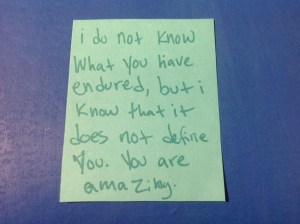 i do not know
What you have
endured, but i
know that it
does not define
you. You are
amazing.